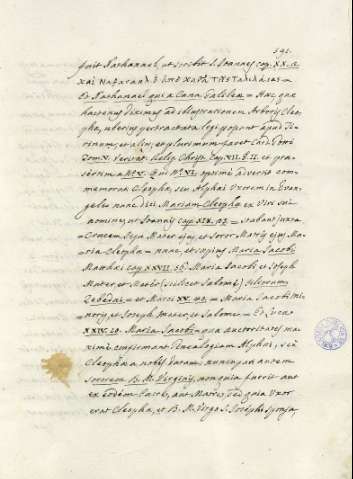 fuit Nathanael, ut scribit S. Joannes cap. XX. 2.
καὶ Ναθαναὴλ ὁ ἀπὸ Κανᾶ τῆς Γαλιλαίας =
Et Nathanael qui a Cana Galileæ = Hæc quæ
hactenus diximus ad illustrationem Arboris Cleo-
phæ, uberius pertractata legi possunt apud Ti-
rinum, et alios, et plurimum facet
et præ-
sertim
commemorat Cleophæ, seu Alphæi Uxorem in Evan-
gelio nunc dici Mariam Cleophæ ex Viri sui
nomine, ut Joannis cap. XIX. 25. = stabant juxta
Crucem Jesu Mater ejus, et Soror Matris ejus Ma-
ria Cleophæ = nunc, et sæpius Maria Jacobi
Matthæi cap. XXVII. 56. Maria Jacobi, et Joseph
Mater, et Mater (scilicet Salome) filiorum
Zebedæi = et Marci XV. 40. = Maria Jacobi Mi-
noris, et Joseph Mater, et Salome = Et Lucæ
XXIV. 10. Maria Jacobi = quæ auctoritates ma-
xime confirmant Genealogiam Alphæi, seu
Cleophæ a nobis datam, nuncupat autem
sororem B. M. Virginis, non quia fuerit aut
ex eodem Patre, aut Matre, sed quia Uxor
erat Cleophæ, et B. M. Virgo S. Josephi sponsa,